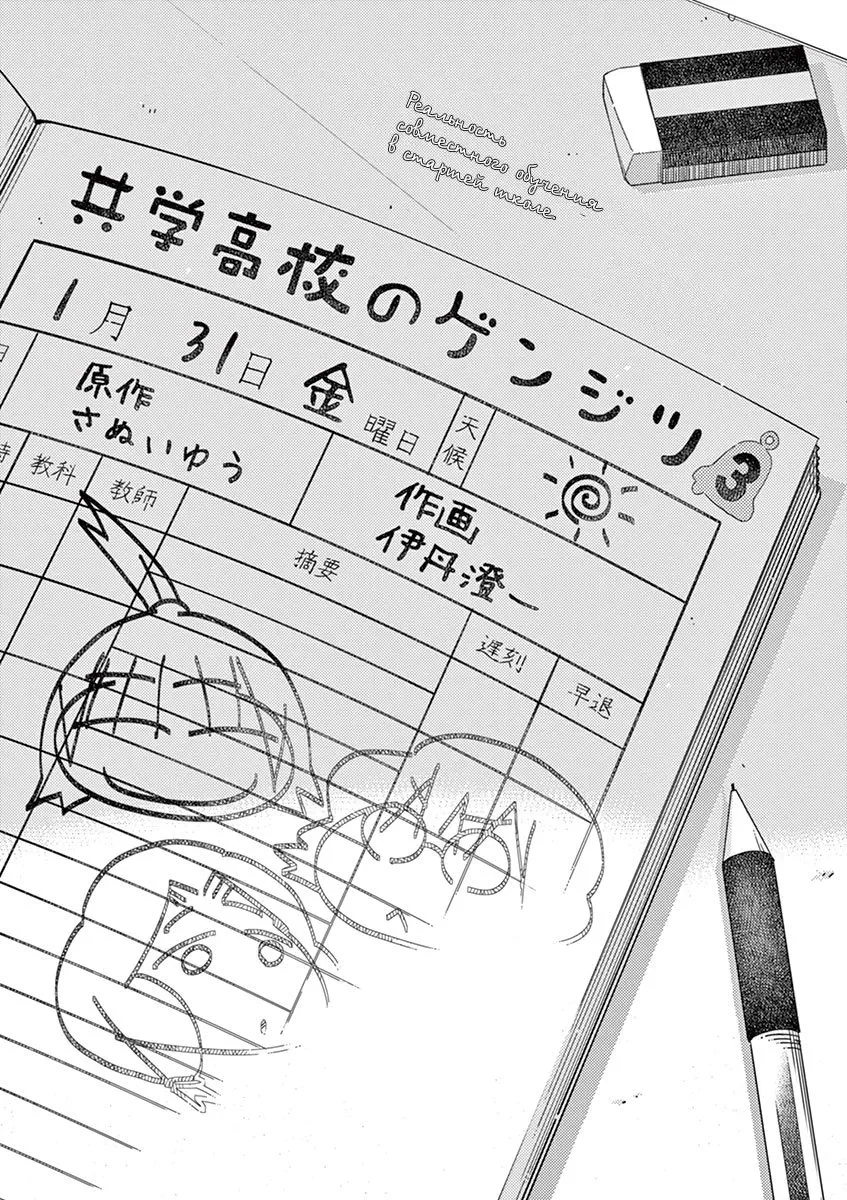 Реальность
совместного обучения
в старшей школе
共学高校のゲンジツ 3
1月 31日 金曜日 天候
原作
さぬいゆう
作画
伊丹澄一
教科 教師 摘要 遅刻 早退